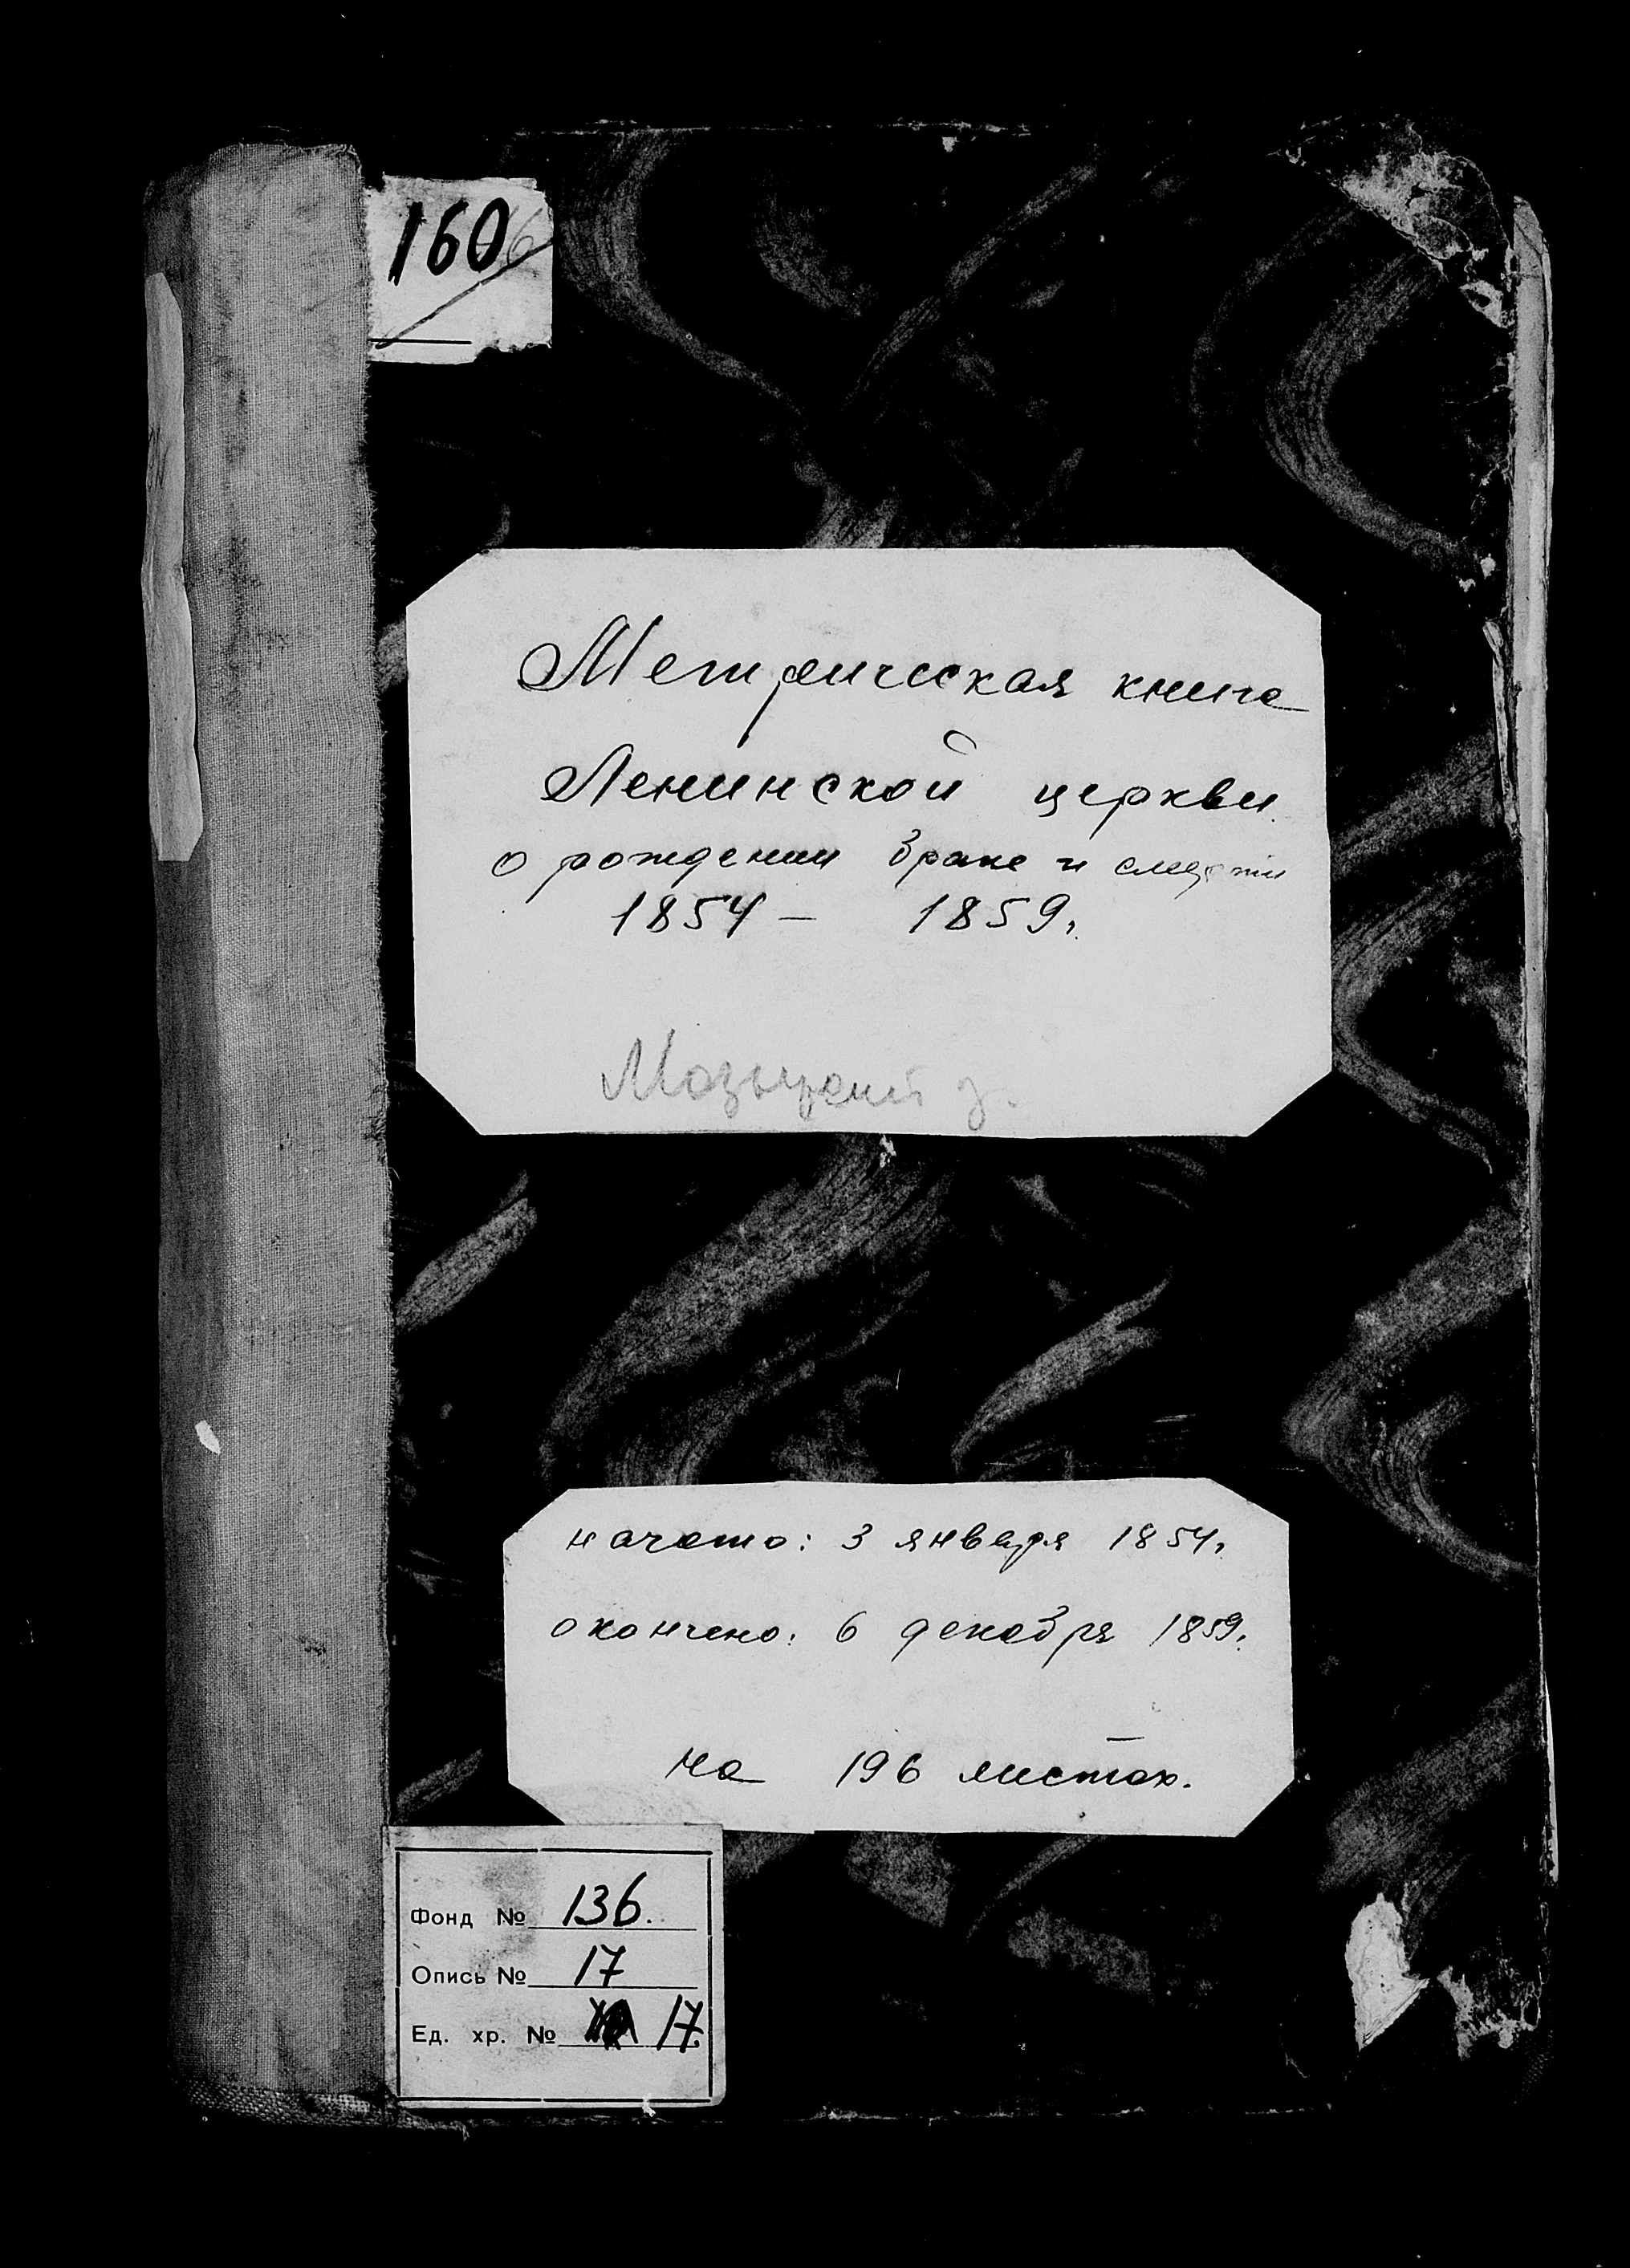 160
Метрическая книга
Ленинской церкви
о рождении браке и смерти
1854 – 1859.
Мозырский у.
начато: 3 января 1854.
окончено: 6 декабря 1859.
на 196 листах.
Фонд № 136.
Опись № 17
Ед. хр. № 17